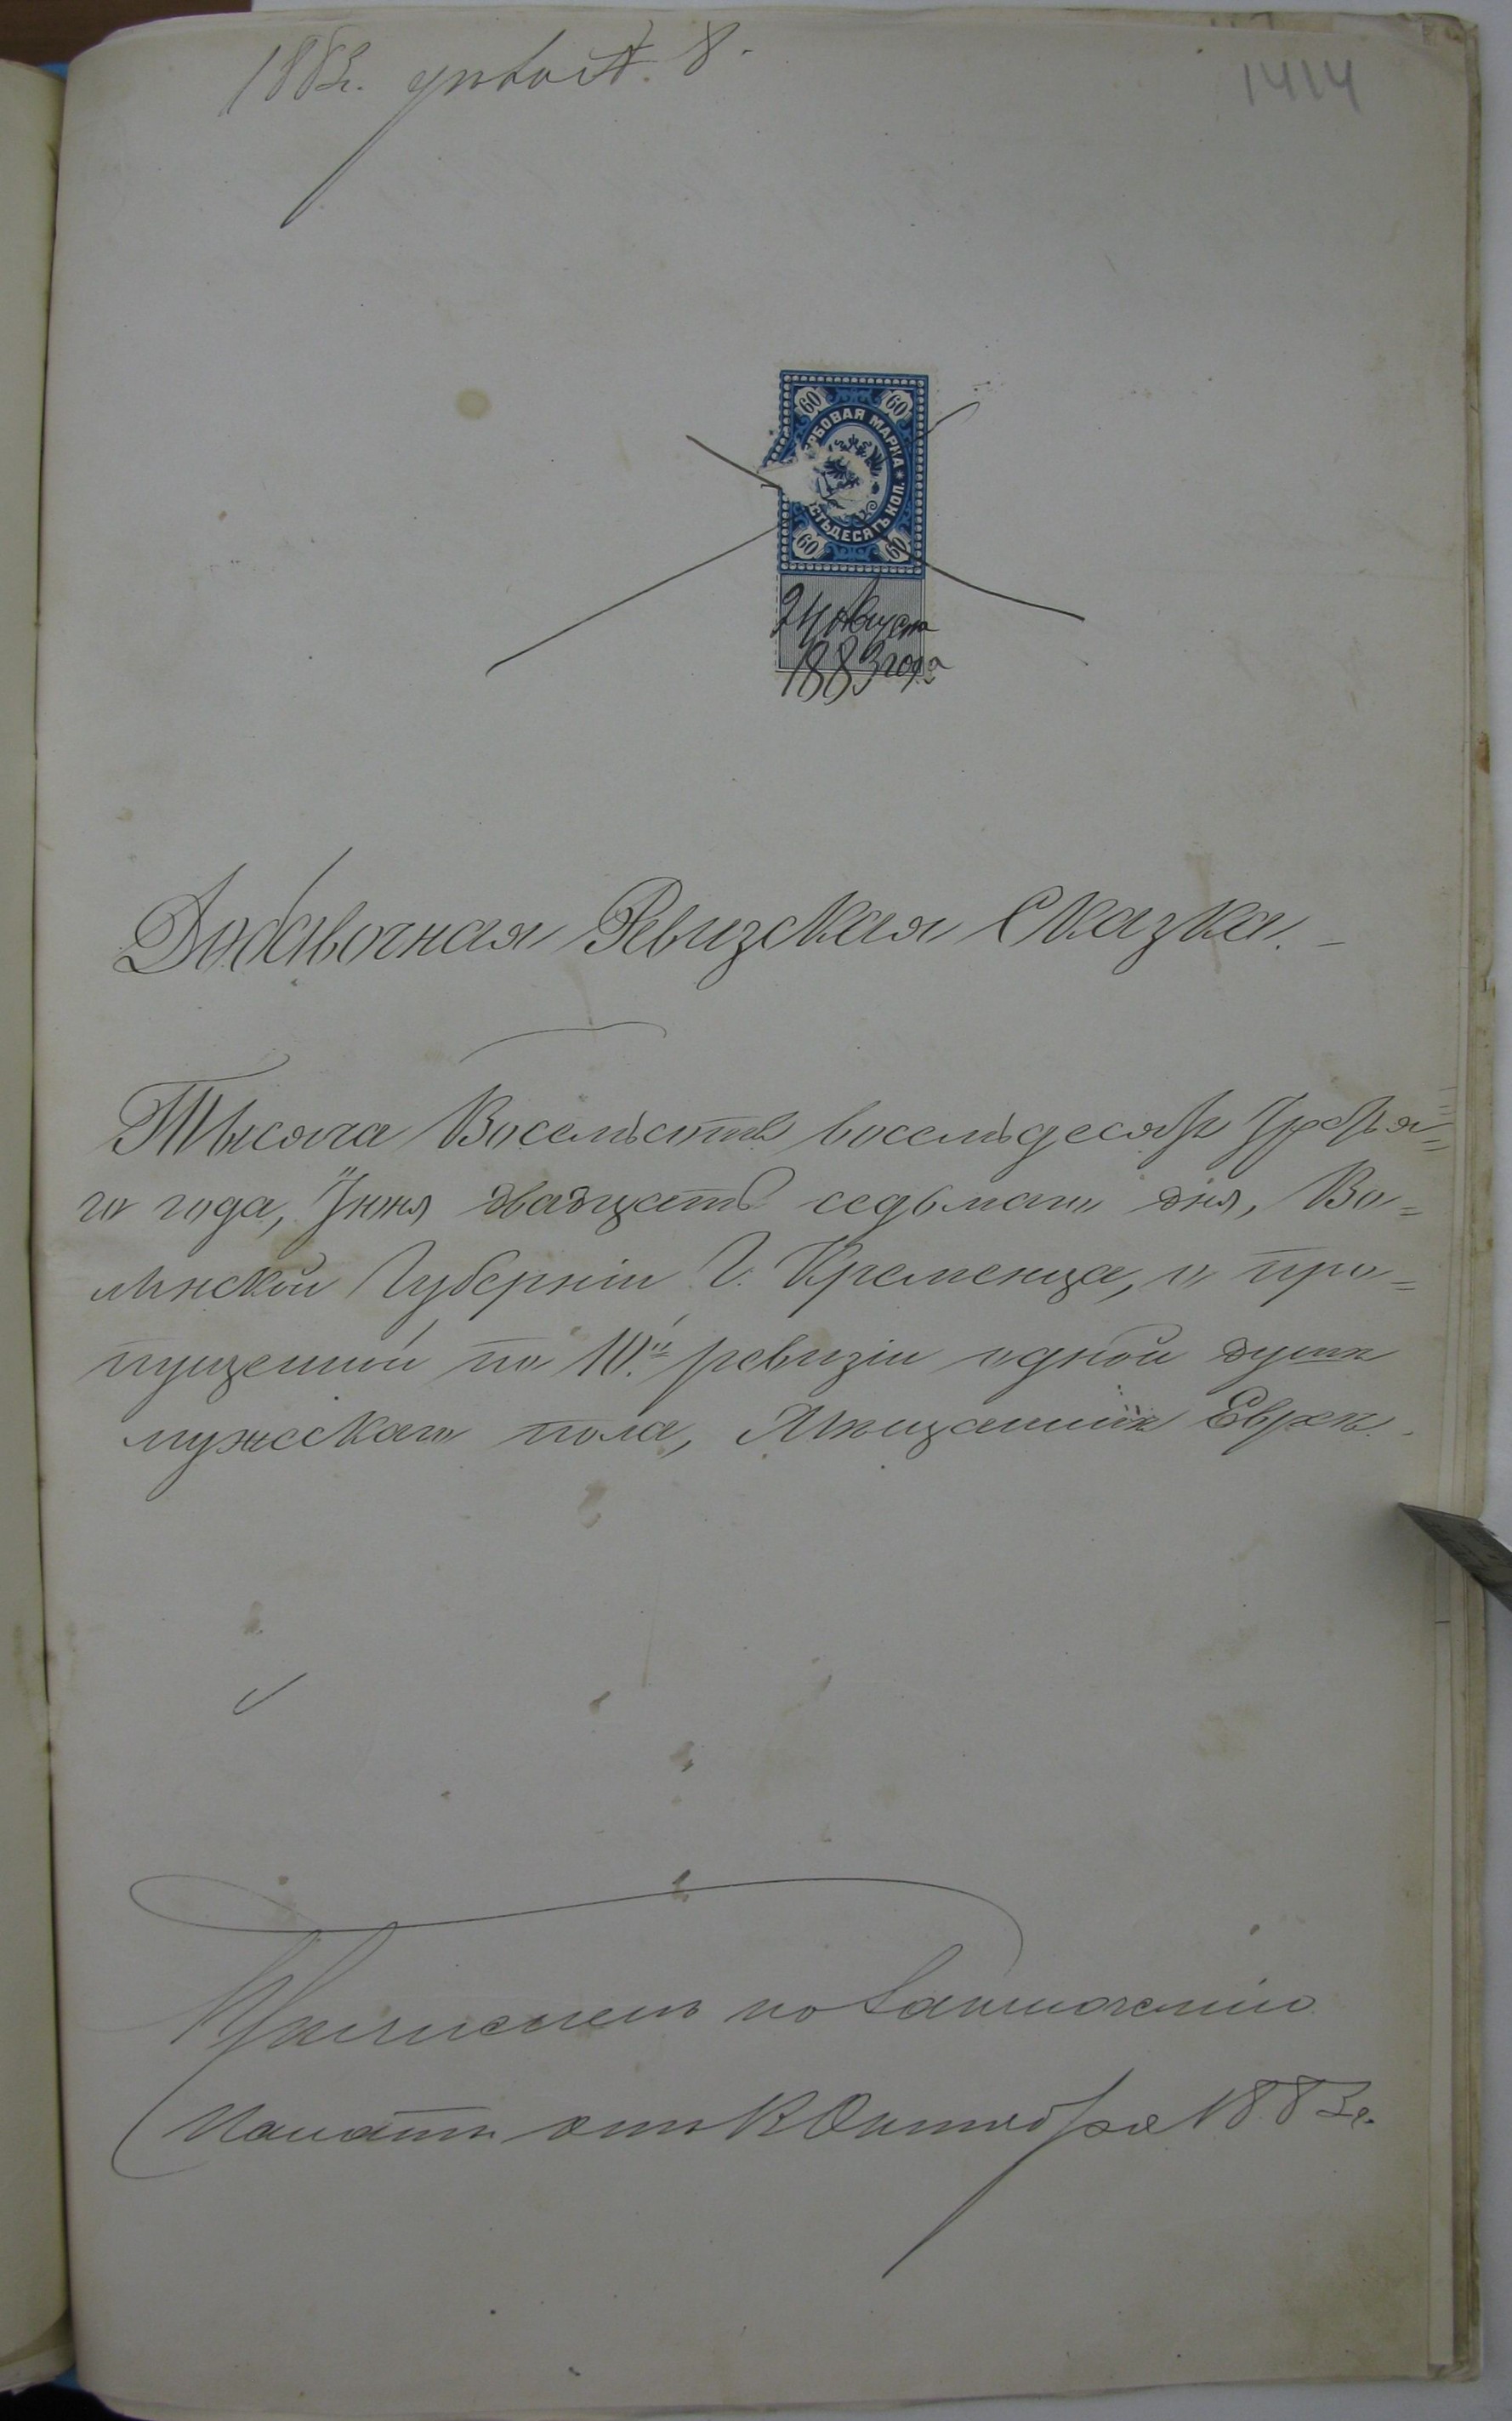 1883 г. № 8.
1414
60 60
ГЕРБОВАЯ МАРКА
ШЕСТЬДЕСЯТЪ КОП.
60 60
24 Августа
1883 года
Добавочная Ревизская Сказка.
Тысяча Восемьсотъ восемьдесятъ Третья=
го года, Іюня двадцать седьмаго дня, Во=
лынской Губерніи Г. Кременца, о про=
пущенной по 10й ревизіи одной душѣ
мужескаго пола, Мѣщанинѣ Евреѣ.
Причисленъ по
Палаты отъ Октября 1883 г.